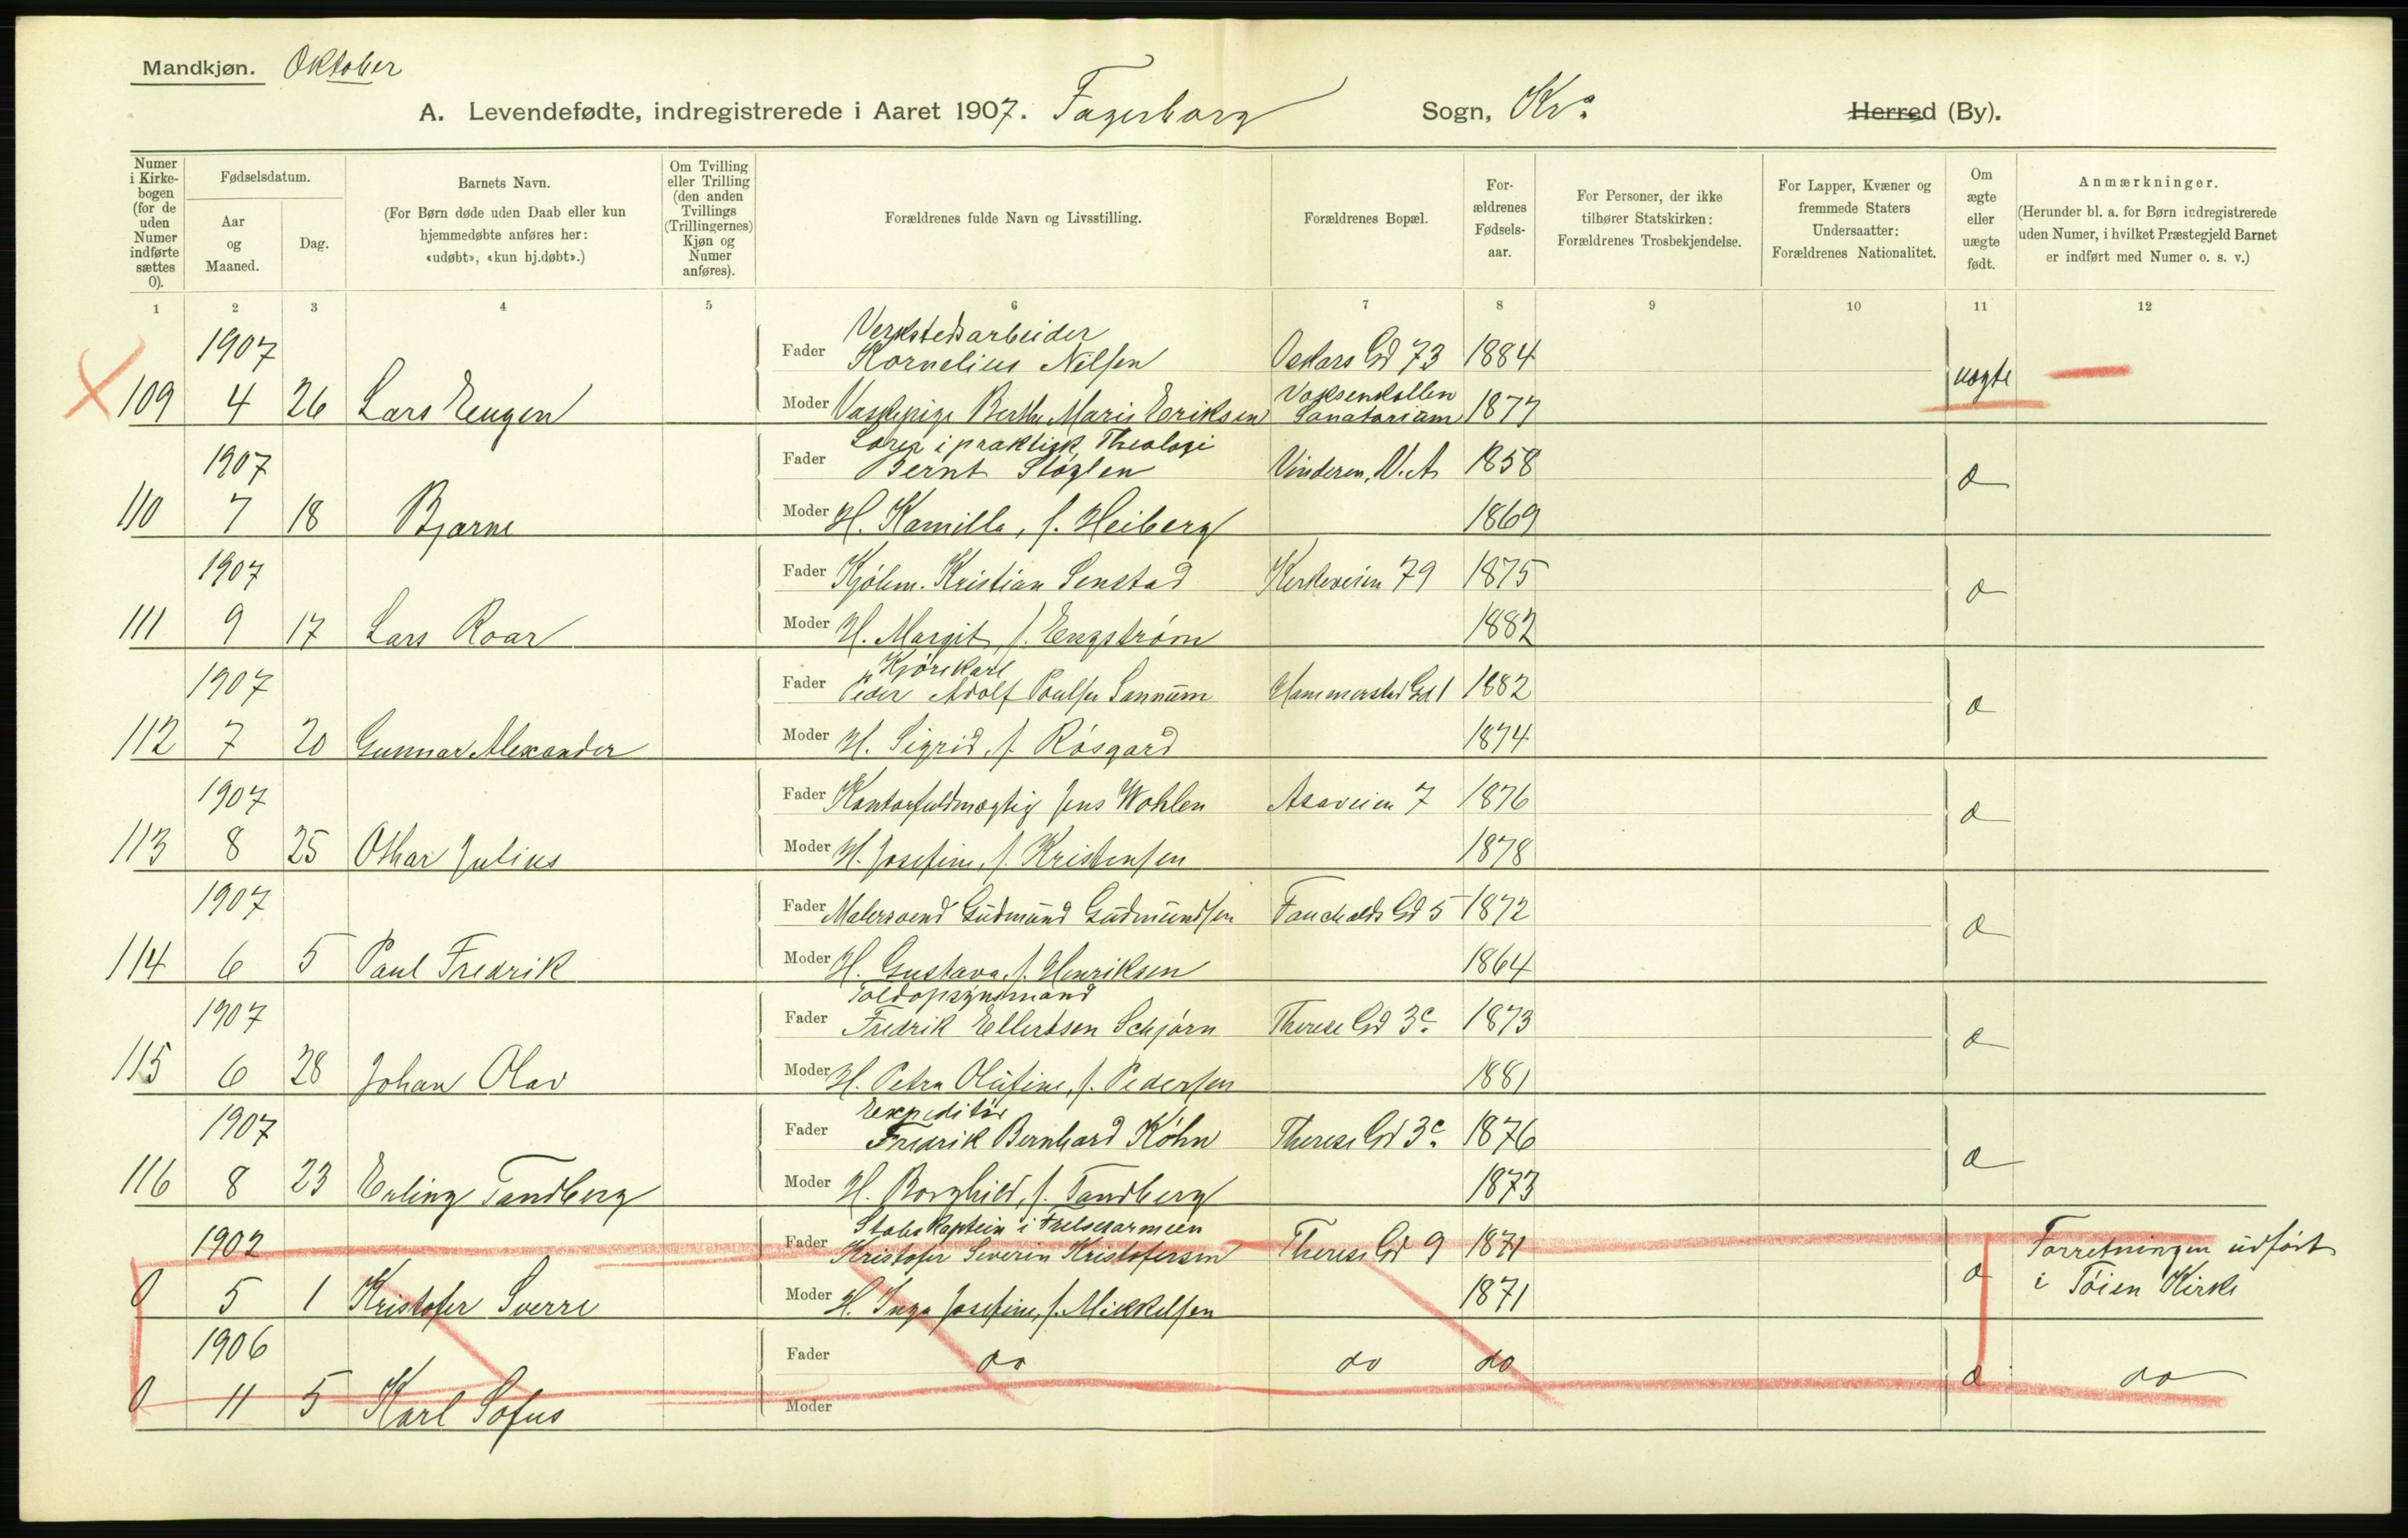 Mandkjøn. Oktober
A. Levendefødte, indregistrerede i Aaret 1907. Fagerborg Sogn, Kra. Herred (By).
Numer i Kirkebogen (for de uden Numer indførte sættes 0).
Fødselsdatum.
Aar og Maaned.
Dag.
Barnets Navn.
(For Børn døde uden Daab eller kun hjemmedøbte anføres her: «udøbt», «kun hj.døbt».)
Om Tvilling eller Trilling (den anden Tvillings (Trillingernes) Kjøn og Numer anføres).
Forældrenes fulde Navn og Livsstilling.
Forældrenes Bopæl.
Forældrenes Fødselsaar.
For Personer, der ikke tilhører Statskirken: Forældrenes Trosbekjendelse.
For Lapper, Kvæner og fremmede Staters Undersaatter: Forældrenes Nationalitet.
Om ægte eller uægte født.
Anmærkninger.
(Herunder bl. a. for Børn indregistrerede uden Numer, i hvilket Præstegjeld Barnet er indført med Numer o. s. v.)
1 2 3 4 5 6 7 8 9 10 11 12
1907 Fader Verkstedsarbeider Kornelius Nilsen Oskars Gd 73 1884 uægte
109 4 26 Lars Eugen Moder Vaskepige Berthe Marie Eriksen Voksenkollen Sanatorium 1877
1907 Fader Lærer i praktisk Theologi Bernt Støylen Vinderen, V. A 1858 æ
110 7 18 Bjarne Moder H. Kamilla, f. Heiberg 1869
1907 Fader Kjøbm. Kristian Senstad Kirkeveien 79 1875 æ
111 9 17 Lars Roar Moder H. Margit, f. Engstrøm 1882
1907 Fader Kjørekarl Peder Adolf Poulsen Sannum Hammerstad Gd 1 1882 æ
112 7 20 Gunnar Alexander Moder H. Sigrid, f. Røsgard 1874
1907 Fader Kontorfuldmægtig Jens Wohlen Asaveien 7 1876 æ
113 8 25 Othar Julius Moder H. Josefine, f. Kristensen 1878
1907 Fader Malersvend Gudmund Gudmundsen Fauchalds Gd 5 1872 æ
114 6 5 Paul Fredrik Moder H. Gustava, f. Henriksen 1864
1907 Fader Toldopsynsmand Fredrik Ellertsen Schjørn Therese Gd 3c. 1873 æ
115 6 28 Johan Olav Moder H. Petra Olufine, f. Pedersen 1881
1907 Fader Expeditør Fredrik Bernhard Køhn Therese Gd 3c. 1876 æ
116 8 23 Erling Tandberg Moder H. Borghild, f. Tandberg 1873
1902 Fader Stabskaptein i Frelsesarmeen Kristofer Severin Kristofersen Therese Gd 9 1871 æ Forretningen udført
0 5 1 Kristofer Sverre Moder H. Inga Josefine, f. Mikkelsen 1871 i Tøien Kirke
1906 Fader do do do æ do
0 11 5 Karl Sofus Moder